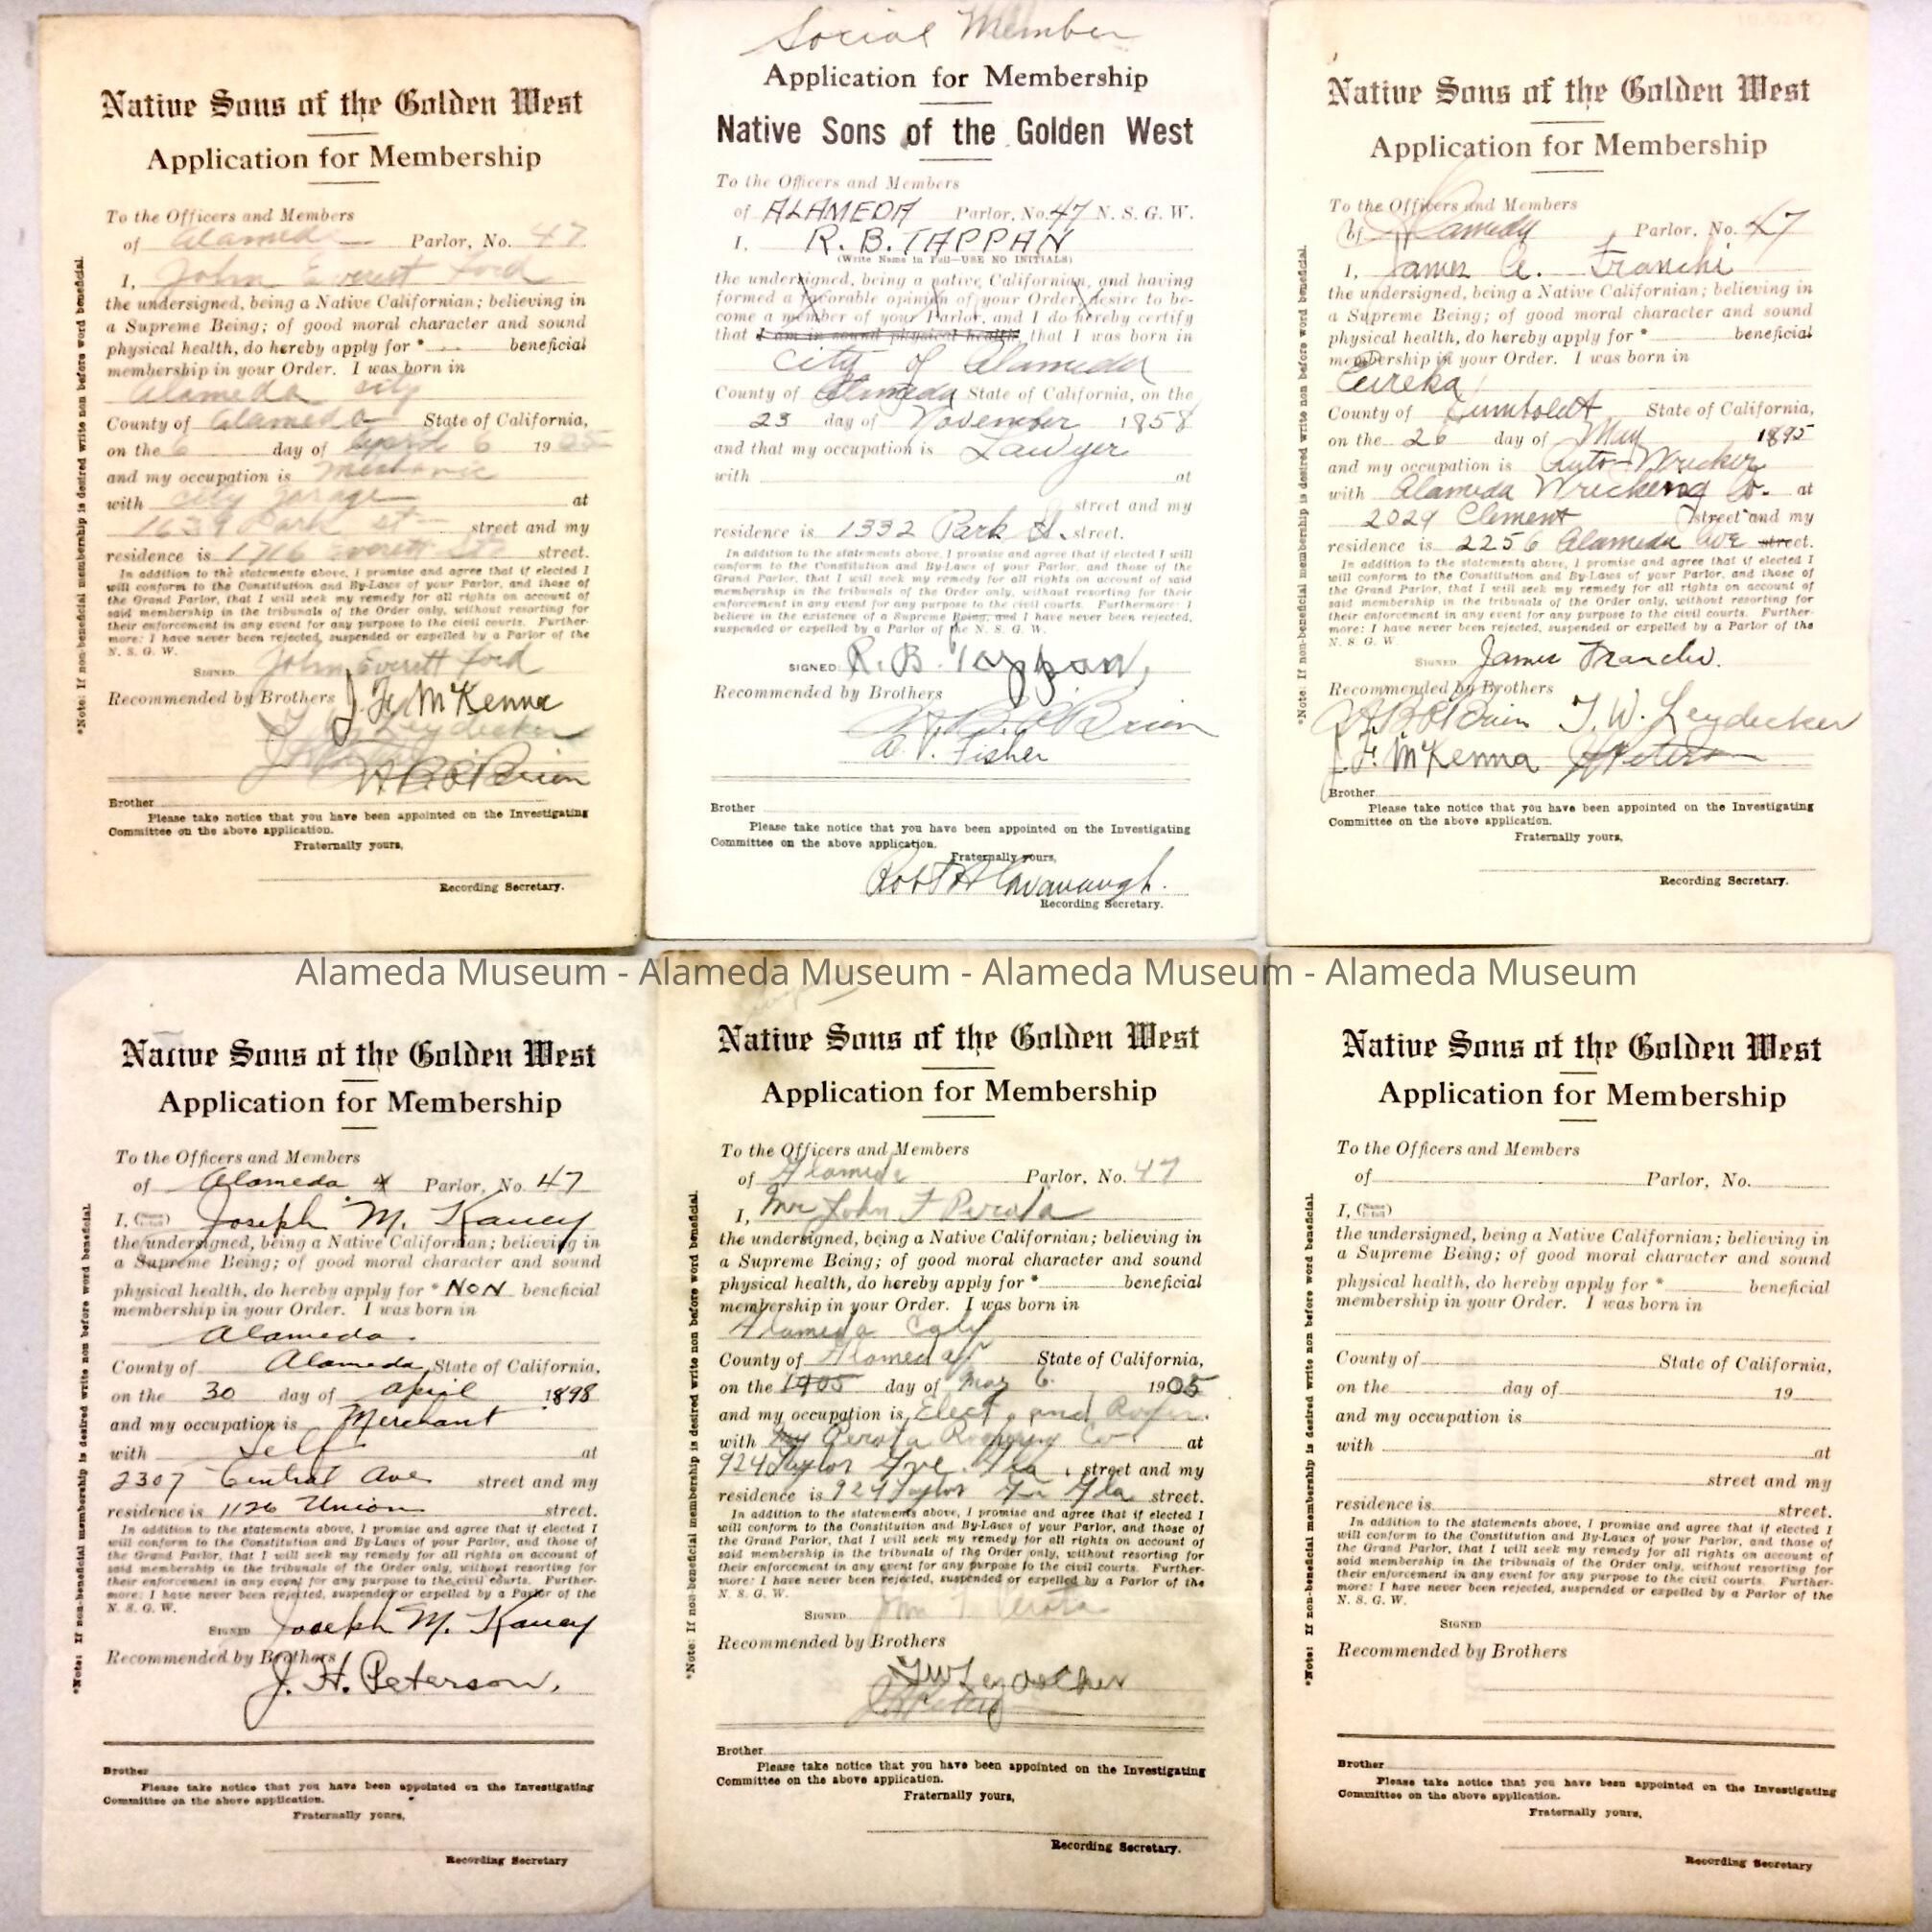 Native Sons of the Golden West
Application for Membership
To the Officers and Members
of Alameda Parlor, No. 47
I, John Everett Ford
the undersigned, being a Native Californian; believing in
a Supreme Being; of good moral character and sound
physical health, do hereby apply for * beneficial
membership in your Order. I was born in
Alameda city
County of Alameda State of California,
on the 6 day of April 6 19 05
and my occupation is Mechanic
with city garage at
1639 Park st street and my
residence is 1716 Everett St street.
In addition to the statements above, I promise and agree that if elected I
will conform to the Constitution and By-Laws of your Parlor, and those of
the Grand Parlor, that I will seek my remedy for all rights on account of
said membership in the tribunals of the Order only, without resorting for
their enforcement in any event for any purpose to the civil courts. Further-
more: I have never been rejected, suspended or expelled by a Parlor of the
N. S. G. W.
SIGNED John Everett Ford
Recommended by Brothers J. F. McKenna
T. W. Leydecker
H. B. O'Brien
Brother
Please take notice that you have been appointed on the Investigating
Committee on the above application.
Fraternally yours,
Recording Secretary.
*Note: If non-beneficial membership is desired write non before word beneficial.
Social Member
Application for Membership
Native Sons of the Golden West
To the Officers and Members
of ALAMEDA Parlor, No. 47 N. S. G. W.
I, R. B. TAPPAN
(Write Name in Full—USE NO INITIALS)
the undersigned, being a native Californian, and having
formed a favorable opinion of your Order, desire to be-
come a member of your Parlor, and I do hereby certify
that I am in sound physical health, that I was born in
City of Alameda
County of Alameda State of California, on the
23 day of November 1858
and that my occupation is Lawyer
with at
street and my
residence is 1332 Park St. street.
In addition to the statements above, I promise and agree that if elected I will
conform to the Constitution and By-Laws of your Parlor, and those of the
Grand Parlor, that I will seek my remedy for all rights on account of said
membership in the tribunals of the Order only, without resorting for their
enforcement in any event for any purpose to the civil courts. Furthermore: I
believe in the existence of a Supreme Being, and I have never been rejected,
suspended or expelled by a Parlor of the N. S. G. W.
SIGNED: R. B. Tappan,
Recommended by Brothers
H. B. O'Brien
A. V. Fisher
Brother
Please take notice that you have been appointed on the Investigating
Committee on the above application.
Fraternally yours,
Robt H Cavanaugh.
Recording Secretary.
Native Sons of the Golden West
Application for Membership
To the Officers and Members
of Alameda Parlor, No. 47
I, James A. Franchi
the undersigned, being a Native Californian; believing in
a Supreme Being; of good moral character and sound
physical health, do hereby apply for * beneficial
membership in your Order. I was born in
Eureka
County of Humboldt State of California,
on the 26 day of May 1895
and my occupation is Auto-Wrecker
with Alameda Wrecking Co. at
2029 Clement street and my
residence is 2256 Alameda Ave street.
In addition to the statements above, I promise and agree that if elected I
will conform to the Constitution and By-Laws of your Parlor, and those of
the Grand Parlor, that I will seek my remedy for all rights on account of
said membership in the tribunals of the Order only, without resorting for
their enforcement in any event for any purpose to the civil courts. Further-
more: I have never been rejected, suspended or expelled by a Parlor of the
N. S. G. W.
SIGNED James Franchi.
Recommended by Brothers
H B O'Brien T. W. Leydecker
J. F. McKenna
Brother
Please take notice that you have been appointed on the Investigating
Committee on the above application.
Fraternally yours,
Recording Secretary.
*Note: If non-beneficial membership is desired write non before word beneficial.
Alameda Museum - Alameda Museum - Alameda Museum - Alameda Museum
Native Sons of the Golden West
Application for Membership
To the Officers and Members
of Alameda Parlor, No. 47
I, (Name in full) Joseph M. Kancy
the undersigned, being a Native Californian; believing in
a Supreme Being; of good moral character and sound
physical health, do hereby apply for * NON beneficial
membership in your Order. I was born in
Alameda.
County of Alameda State of California,
on the 30 day of April 1898
and my occupation is Merchant
with Self at
2307 Central Ave street and my
residence is 1126 Union street.
In addition to the statements above, I promise and agree that if elected I
will conform to the Constitution and By-Laws of your Parlor, and those of
the Grand Parlor, that I will seek my remedy for all rights on account of
said membership in the tribunals of the Order only, without resorting for
their enforcement in any event for any purpose to the civil courts. Further-
more: I have never been rejected, suspended or expelled by a Parlor of the
N. S. G. W.
SIGNED Joseph M. Kancy
Recommended by Brothers
J. H. Peterson,
Brother
Please take notice that you have been appointed on the Investigating
Committee on the above application.
Fraternally yours,
Recording Secretary
*Note: If non-beneficial membership is desired write non before word beneficial.
Native Sons of the Golden West
Application for Membership
To the Officers and Members
of Alameda Parlor, No. 47
I, Mr John F Perata
the undersigned, being a Native Californian; believing in
a Supreme Being; of good moral character and sound
physical health, do hereby apply for * beneficial
membership in your Order. I was born in
Alameda Calif
County of Alameda State of California,
on the 1905 day of May 6. 1905
and my occupation is Elect. and Roofer.
with My Perata Roofing Co at
924 Taylor Ave. Ala. street and my
residence is 924 Taylor Av Ala street.
In addition to the statements above, I promise and agree that if elected I
will conform to the Constitution and By-Laws of your Parlor, and those of
the Grand Parlor, that I will seek my remedy for all rights on account of
said membership in the tribunals of the Order only, without resorting for
their enforcement in any event for any purpose to the civil courts. Further-
more: I have never been rejected, suspended or expelled by a Parlor of the
N. S. G. W.
SIGNED John F. Perata
Recommended by Brothers
T W Leydecker
Brother
Please take notice that you have been appointed on the Investigating
Committee on the above application.
Fraternally yours,
Recording Secretary.
*Note: If non-beneficial membership is desired write non before word beneficial.
Native Sons of the Golden West
Application for Membership
To the Officers and Members
of Parlor, No.
I, (Name in full)
the undersigned, being a Native Californian; believing in
a Supreme Being; of good moral character and sound
physical health, do hereby apply for * beneficial
membership in your Order. I was born in
County of State of California,
on the day of 19
and my occupation is
with at
street and my
residence is street.
In addition to the statements above, I promise and agree that if elected I
will conform to the Constitution and By-Laws of your Parlor, and those of
the Grand Parlor, that I will seek my remedy for all rights on account of
said membership in the tribunals of the Order only, without resorting for
their enforcement in any event for any purpose to the civil courts. Further-
more: I have never been rejected, suspended or expelled by a Parlor of the
N. S. G. W.
SIGNED
Recommended by Brothers
Brother
Please take notice that you have been appointed on the Investigating
Committee on the above application.
Fraternally yours,
Recording Secretary
*Note: If non-beneficial membership is desired write non before word beneficial.